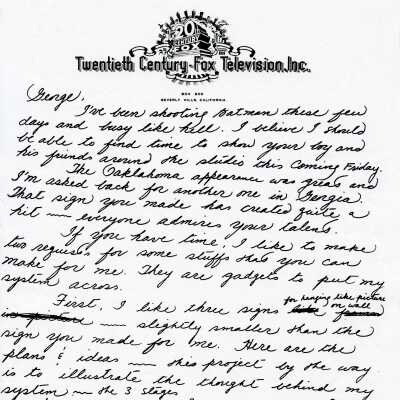 20th
CENTURY
FOX
Twentieth Century-Fox Television, Inc.
BOX 900
BEVERLY HILLS, CALIFORNIA
George,
I've been shooting Batman these few
days and busy like hell. I belive I should
be able to find time to show your boy and
his friends around the studio this coming Friday.
The Oaklahoma appearence was great and
I'm asked back for another one in Georgia.
That sign you made has created quite a
hit — everyone admires your talent.
If you have time, I like to make
two requests for some stuffs that you can
make for me. They are gadgets to put my
system across.
First, I like three signs for hanging like picture on wall
— slightly smaller than the
sign you made for me. Here are the
plans & ideas — this project by the way
is to illustrate the thought behind my
system — the 3 stages